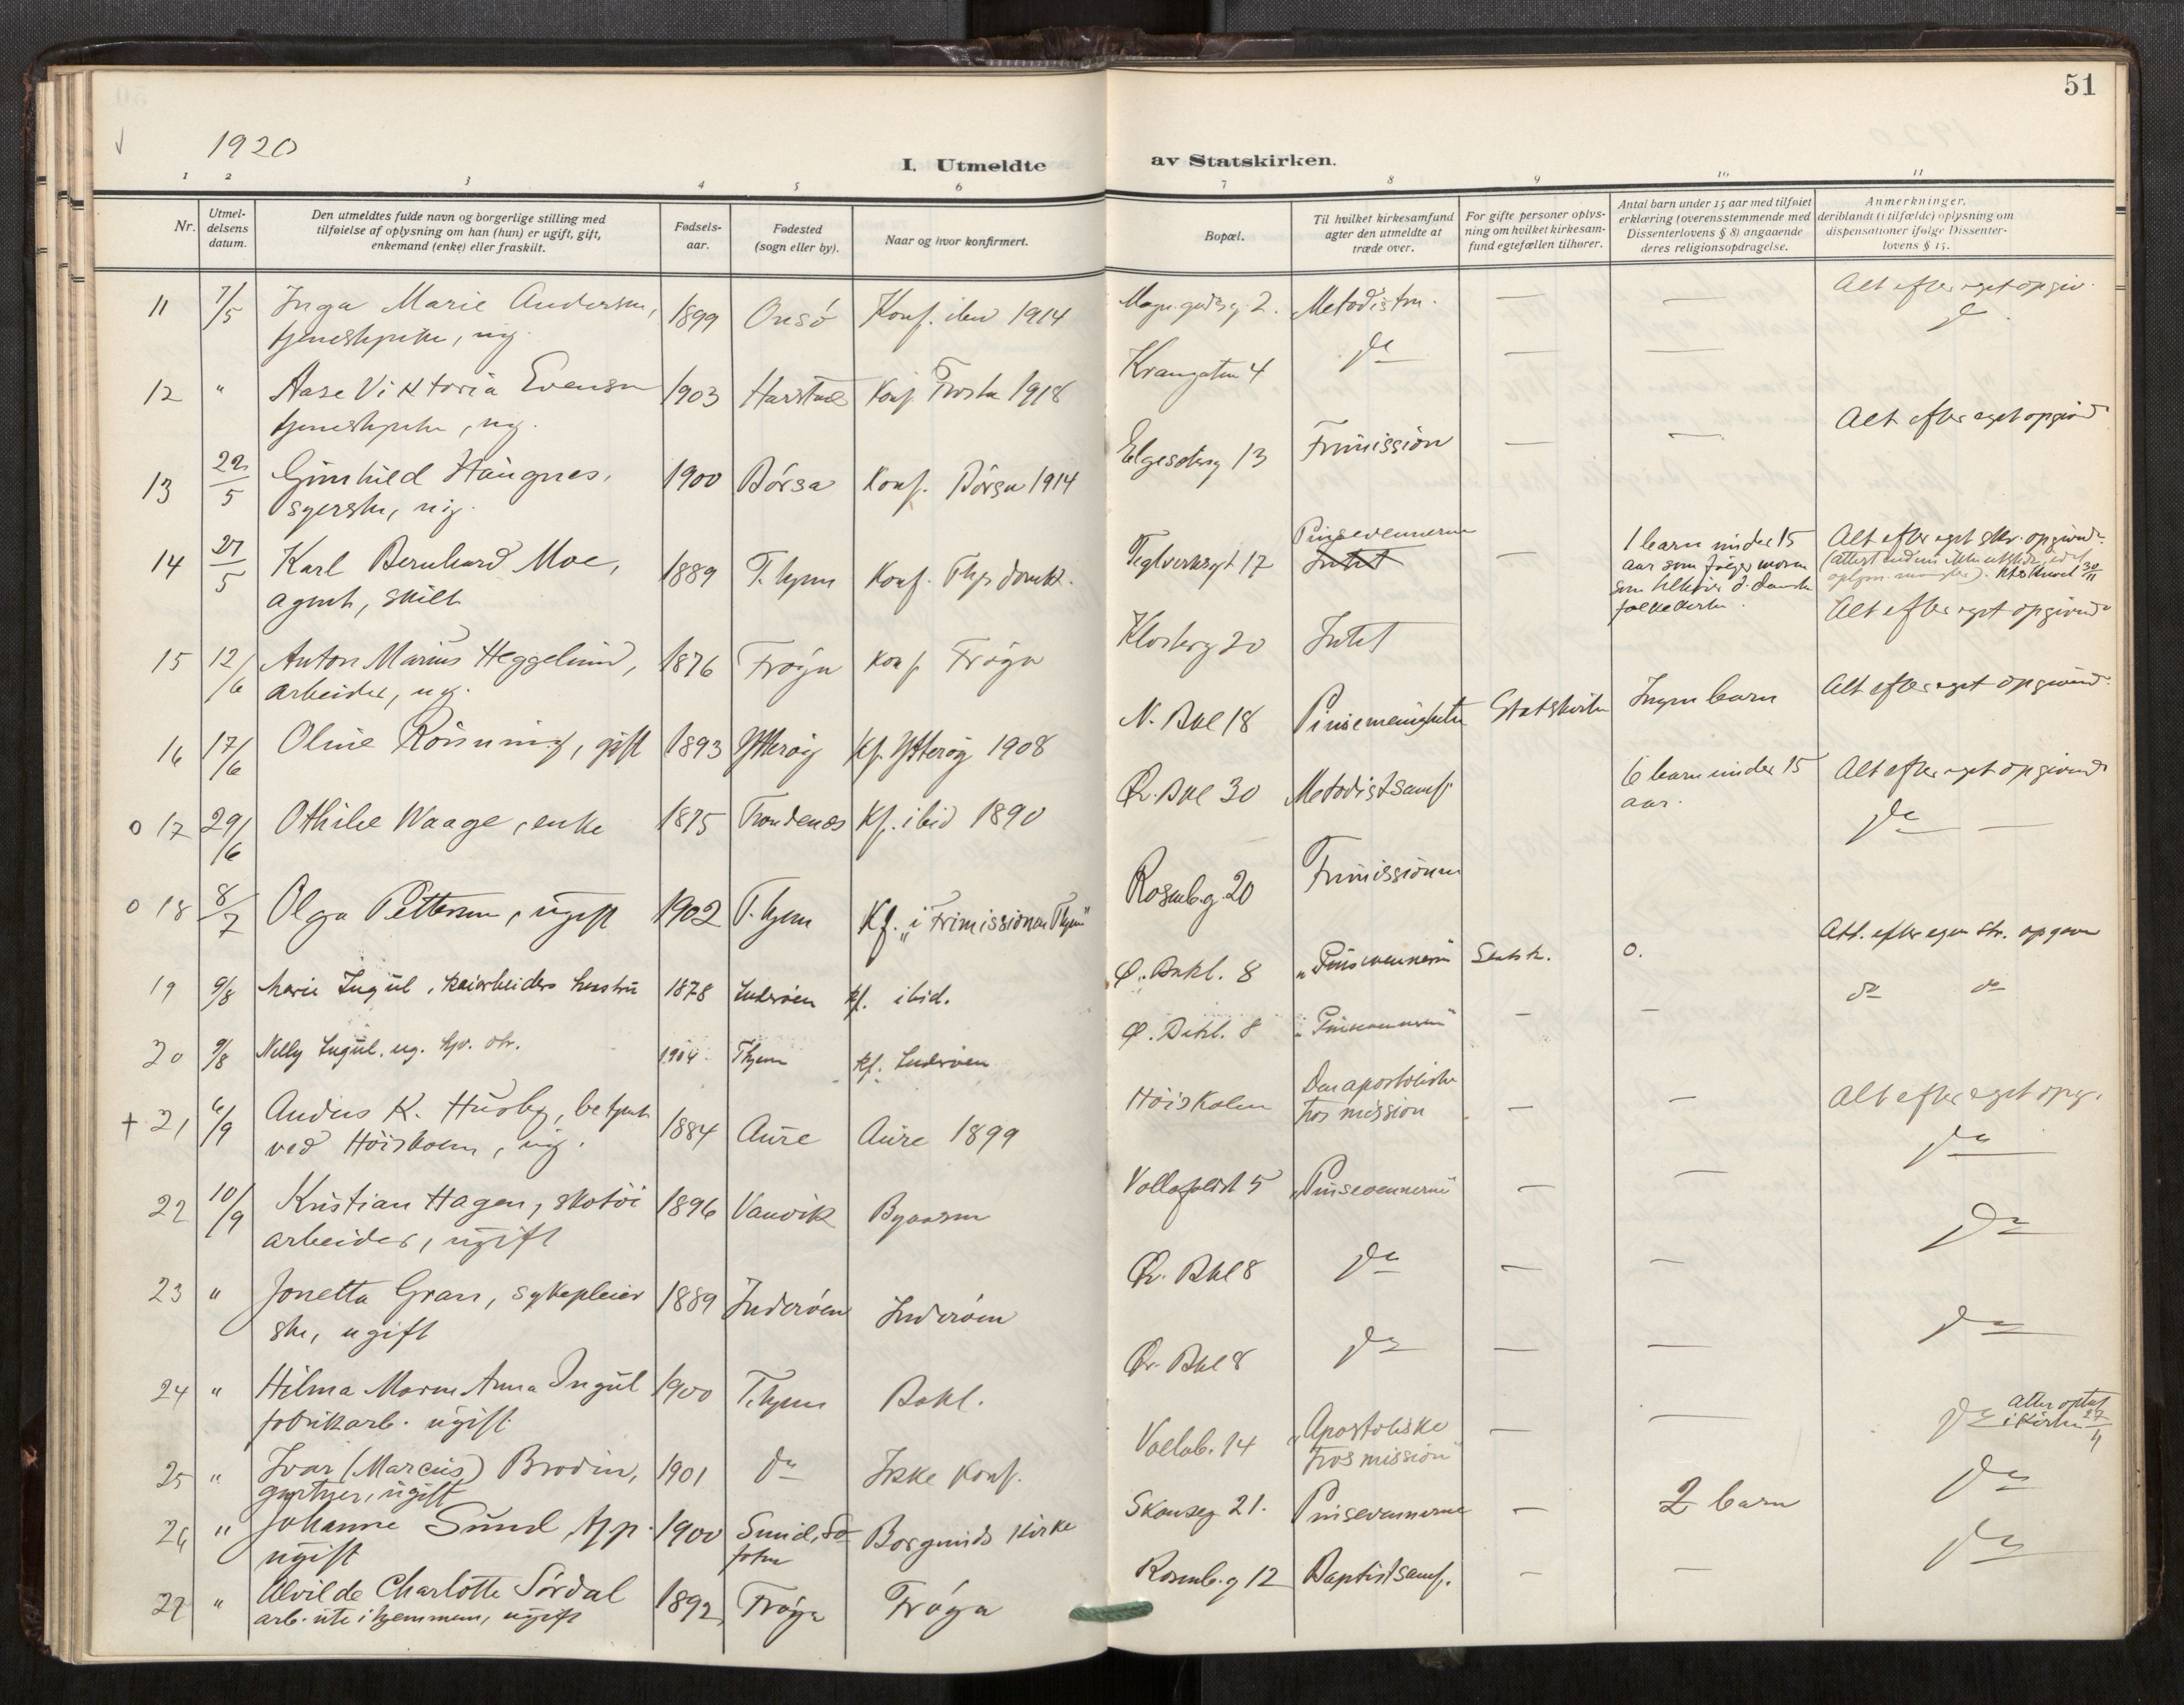 51
1920
I. Utmeldte av Statskirken.
1 2 3 4 5 6 7 8 9 10 11
Nr.
Utmel-
delsens
datum.
Den utmeldtes fulde navn og borgerlige stilling med
tilføielse af oplysning om han (hun) er ugift, gift,
enkemand (enke) eller fraskilt.
Fødsels-
aar.
Fødested
(sogn eller by).
Naar og hvor konfirmert.
Bopæl.
Til hvilket kirkesamfund
agter den utmeldte at
træde over.
For gifte personer oplys-
ning om hvilket kirkesam-
fund egtefællen tilhører.
Antal barn under 15 aar med tilføiet
erklæring (overensstemmende med
Dissenterlovens § 8) angaaende
deres religionsopdragelse.
Anmerkninger,
deriblandt (i tilfælde) oplysning om
dispensationer ifølge Dissenter-
lovens § 15.
11 7/5 Inga Marie Andersen, 1899 Onsö Konf. ibid 1914 2. — — Alt efter eget opgiv.
tjenestepike, ug. do
12 " Aase Viktoria Evensen 1903 Harstad Konf. 1918 Krangaten 4 do — —
tjenestepike, ug.
13 22/5 Gunhild Haugnes, 1900 Börsa Konf. Börsa 1914 Elgeseterg 13 Frimission — — Alt efter eget opgivd
syerske, ug.
14 27/5 Karl Bernhard Moe, 1889 T.hjem Konf. Thjs domk. Teglverksgt 17 Pinsevennerne Intet — 1 barn under 15 Alt efter eget skr. opgivende
agent, skilt aar som følger moren
som tilhører d. danske
folkekirke.
15 12/6 Anton Marius Heggelund, 1876 Fröya Konf Fröya Klosterg 20 Intet Alt efter eget opgivende
arbeider, ug.
16 17/6 Oline Rönning, gift 1893 Ytteröy Kf. Ytteröy 1908 N. Bkl 18 Pinsemenigheten Statskirken Ingen barn Alt efter eget opgivend
o 17 29/6 Othilie Waage, enke 1875 Trondenæs Kf. ibid 1890 Ö. Bkl 30 Metodistsamf. 6 barn under 15 Alt efter eget opgivende
aar. do —
o 18 8/7 Olga Pettersen, ugift 1902 T.hjem Kf. "i Frimissionen Thjem" Rosenb.g. 20 Frimissionen
19 9/8 Marie Ingul, kaiarbeiders hustru 1878 Inderøen kf. ibid. Ø. Bakl. 8 "Pinsevennerne" Statsk. 0. Alt. efter egen skr. opgave
20 9/8 Nelly Ingul, ug. hjv. dtr. 1904 Thjem kf. Inderøen Ø. Bakl. 8 "Pinsevennerne" — — do do
+ 21 6/9 Andus K. Husby, betjent 1884 Aure Aure 1899 Höiskolen Den apostoliske — — Alt efter eget opg.
ved Höiskolen, ug. tros mission do
22 10/9 Kristian Hagen, skotöi 1896 Vanvik Byaasen Vollafaldt 5 "Pinsevennerne" — —
arbeider, ugift do
23 " Jonetta Gran, sykepleier 1889 Inderöen Inderöen Ö. Bkl 8 do — —
ske, ugift do
24 " Hilma Anna Ingul 1900 T.hjem Bakl. Ö. Bkl 8 do — —
fabrikarb. ugift
25 " Ivar (Marcus) Brodin, 1901 do Ikke konf. Vollab. 14 "Apostoliske — — do atter optat
gartner, ugift tros mission" i kirken 27/4
26 " Johanne Sund, tjp. 1900 Borgunds kirke Skanseg 21. Pinsevennerne — 2 barn do
ugift
27 " Alvilde Charlotte Sørdal 1892 Fröya Fröya Rosenb.g 12 Baptistsamf. — — do
arb. ute i hjemmene, ugift